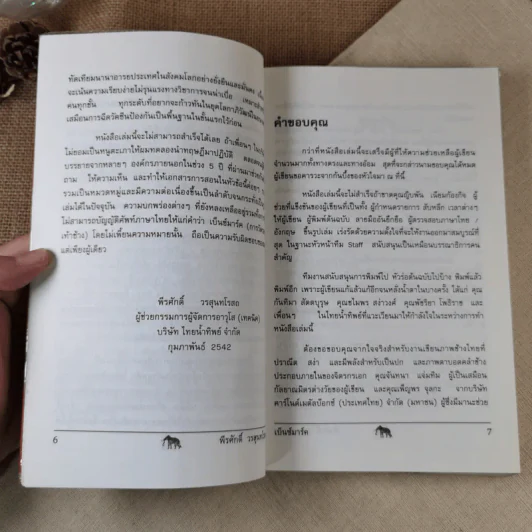 ทัดเทียมนานาอารยประเทศในสังคมโลกอย่างยั่งยืนและมั่นคง
จะเน้นความเรียบง่ายไม่รุนแรงทางวิชาการจนน่าเบื่อ
คนทุกชั้น ทุกระดับที่อยากจะก้าวทันในยุคโลกาภิวัฒน์
เสมือนการฉีดวัคซีนป้องกันเป็นพื้นฐานในชั้นแรกไว้ก่อน
หนังสือเล่มนี้จะไม่สามารถสำเร็จได้เลย ถ้าเพื่อนๆ
ไม่ยอมเป็นหนูตะเภาให้ผมทดลองนำทฤษฎีมาปฏิบัติ ตลอดจน
บรรยายจากหลายๆ องค์กรภายนอกในช่วง 5 ปี ที่ผ่านมา
ถาม ให้ความเห็น และทำให้เอกสารการสอนในหัวข้อนี้
รวมเป็นหมวดหมู่และมีความต่อเนื่องขึ้นเป็นลำดับจน
เล่มได้ในปัจจุบัน ความบกพร่องต่างๆ ที่ยังหลงเหลืออยู่
ไม่สามารถบัญญัติศัพท์ภาษาไทยให้แก่คำว่า เบ็นช์มาร์ค
เท้าช้าง) โดยไม่เพี้ยนความหมายนั้น ถือเป็นความรับผิดชอบ
แต่เพียงผู้เดียว
พีรศักดิ์ วรสุนทโรสถ
ผู้ช่วยกรรมการผู้จัดการอาวุโส (เทคนิค)
บริษัท ไทยน้ำทิพย์ จำกัด
กุมภาพันธ์ 2542
6 พีรศักดิ์
คำขอบคุณ
กว่าที่หนังสือเล่มนี้จะเสร็จมีผู้ที่ให้ความช่วยเหลือผู้เขียน
จำนวนมากทั้งทางตรงและทางอ้อม สุดที่จะกล่าวนามขอบคุณได้หมด
ผู้เขียนขอคารวะจากก้นบึ้งของหัวใจมา ณ ที่นี้
หนังสือเล่มนี้จะไม่สำเร็จถ้าขาดคุณกิบพัน ผู้
ช่วยที่แข็งขันของผู้เขียนที่เป็นทั้ง ผู้กำหนดรายการ สับหลีก เวลาต่างๆ
ให้ผู้เขียน ผู้พิมพ์ต้นฉบับ ลายมืออันยึกยือ ผู้ตรวจสอบภาษาไทย /
อังกฤษ ขึ้นรูปเล่ม เร่งรัดด้วยความตั้งใจที่จะให้งานออกมาสมบูรณ์ที่
สุด ในฐานะหัวหน้าทีม Staff สนับสนุนเป็นเหมือนบรรณาธิการคน
สำคัญ
ทีมงานสนับสนุนการพิมพ์ไป หัวร่อต้นฉบับไปบ้าง พิมพ์แล้ว
พิมพ์อีก เพราะผู้เขียนแก้แล้วแก้อีกจนหลังน้ำตาในบางครั้ง ได้แก่ คุณ
กันทิมา สัตตบุรุษ คุณยไมพร สง่าวงศ์ คุณพัชริยา โพธิ์ราช และ
เพื่อนๆ ในไทยน้ำทิพย์ที่แวะเวียนมาให้กำลังใจในระหว่างการทำ
หนังสือเล่มนี้
ต้องขอขอบคุณจากใจจริงสำหรับงานเขียนภาพช้างไทยที่
ปราณีต สง่า และมีพลังสำหรับเป็นปก และภาพตาบอดคลำช้าง
ประกอบภายในของจิตรกรเอก คุณจันทนา แจ่มทิม ผู้เป็นเสมือน
กัลยาณมิตรต่างวัยของผู้เขียน และคุณเพ็ญพร จุลกะ จากบริษัท
คาร์ไนต์เมตัลบ๊อกซ์ (ประเทศไทย) จำกัด (มหาชน) ผู้ซึ่งมีมานะช่วย
เบ็นช์มาร์ค 7